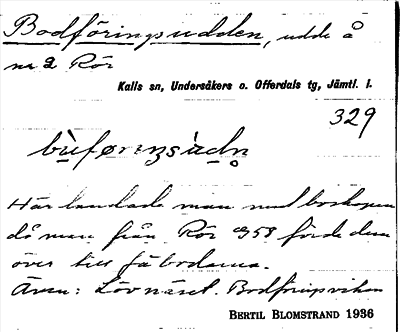 Bodföringsudden, udde å
nr 2 Rör
Kalls sn, Undersåkers o. Offerdals tg, Jämtl. l.
329
bu̇føriŋsùdn̥
Här landade man med boskapen
då man från Rör 958 förde dem
över till fäbodarna.
Även: Lövnäset. Bodföringsviken
BERTIL BLOMSTRAND 1936